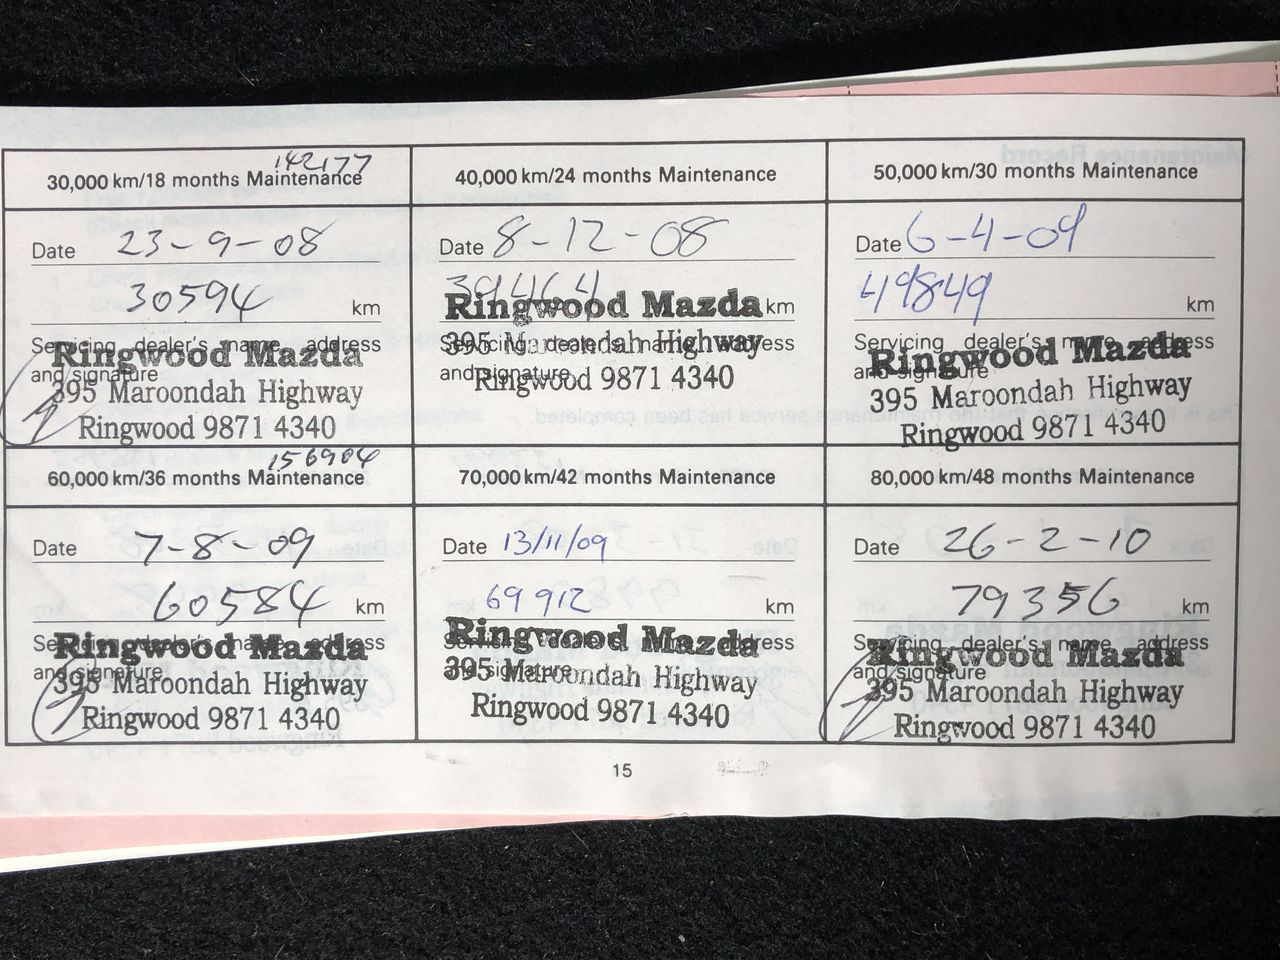 142177
30,000 km/18 months Maintenance
Date 23-9-08
30594 km
Servicing dealer's name, address
and signature
Ringwood Mazda
395 Maroondah Highway
Ringwood 9871 4340
40,000 km/24 months Maintenance
Date 8-12-08
39464 km
Servicing dealer's name, address
and signature
Ringwood Mazda
395 Maroondah Highway
Ringwood 9871 4340
50,000 km/30 months Maintenance
Date 6-4-09
49849 km
Servicing dealer's name, address
and signature
Ringwood Mazda
395 Maroondah Highway
Ringwood 9871 4340
156904
60,000 km/36 months Maintenance
Date 7-8-09
60584 km
Servicing dealer's name, address
and signature
Ringwood Mazda
395 Maroondah Highway
Ringwood 9871 4340
70,000 km/42 months Maintenance
Date 13/11/09
69912 km
Servicing dealer's name, address
and signature
Ringwood Mazda
395 Maroondah Highway
Ringwood 9871 4340
80,000 km/48 months Maintenance
Date 26-2-10
79356 km
Servicing dealer's name, address
and signature
Ringwood Mazda
395 Maroondah Highway
Ringwood 9871 4340
15